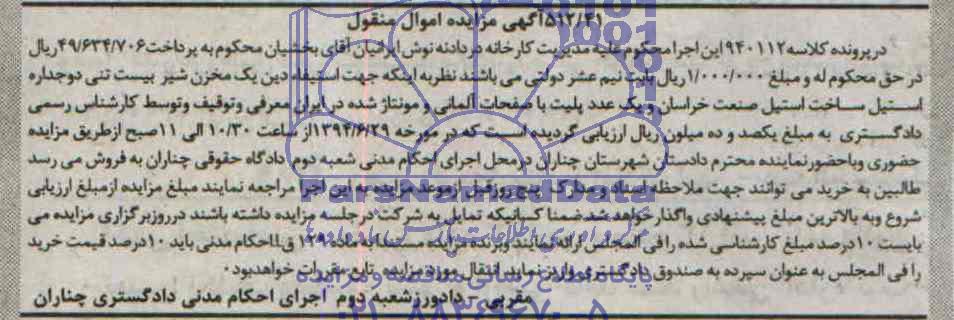 ۵۱۲/۴۱آگهی مزایده اموال منقول
درپرونده کلاسه ۹۴۰۱۱۲ این اجرا محکوم علیه مدیریت کارخانه در دانه نوش ایرانیان آقای بخشیان محکوم به پرداخت ۴۹/۶۳۴/۷۰۶ریال
در حق محکوم له و مبلغ ۱/۰۰۰/۰۰۰ریال بابت نیم عشر دولتی می باشند نظربه اینکه جهت استیفاء دین یک مخزن شیر بیست تنی دوجداره
استیل ساخت استیل صنعت خراسان و یک عدد پلیت با صفحات آلمانی و مونتاژ شده در ایران معرفی وتوقیف وتوسط کارشناس رسمی
دادگستری به مبلغ یکصد و ده میلون ریال ارزیابی گردیده است که در مورخه ۱۳۹۴/۶/۲۹از ساعت ۱۰/۳۰ الی ۱۱صبح ازطریق مزایده
حضوری وباحضورنماینده محترم دادستان شهرستان چناران درمحل اجرای احکام مدنی شعبه دوم دادگاه حقوقی چناران به فروش می رسد
طالبین به خرید می توانند جهت ملاحظه اسناد و مدارک پنج روزقبل ازموعد مزایده به این اجرا مراجعه نمایند مبلغ مزایده ازمبلغ ارزیابی
شروع وبه بالاترین مبلغ پیشنهادی واگذار خواهد شد ضمنا کسانیکه تمایل به شرکت در جلسه مزایده داشته باشند درروزبرگزاری مزایده می
بایست ۱۰درصد مبلغ کارشناسی شده را فی المجلس ارائه نمایند وبرنده مزایده مستندا به ماده ۱۲۹ ق.ا.احکام مدنی باید ۱۰درصد قیمت خرید
را فی المجلس به عنوان سپرده به صندوق دادگستری واریز نماید انتقال مورد مزایده تابع مقررات خواهدبود.
مقربی - دادورزشعبه دوم اجرای احکام مدنی دادگستری چناران
ParsNamadData
پایگاه اطلاع رسانی مناقصه و مزایده
۰۲۱-۸۸۳۴۹۶۷۰-۵